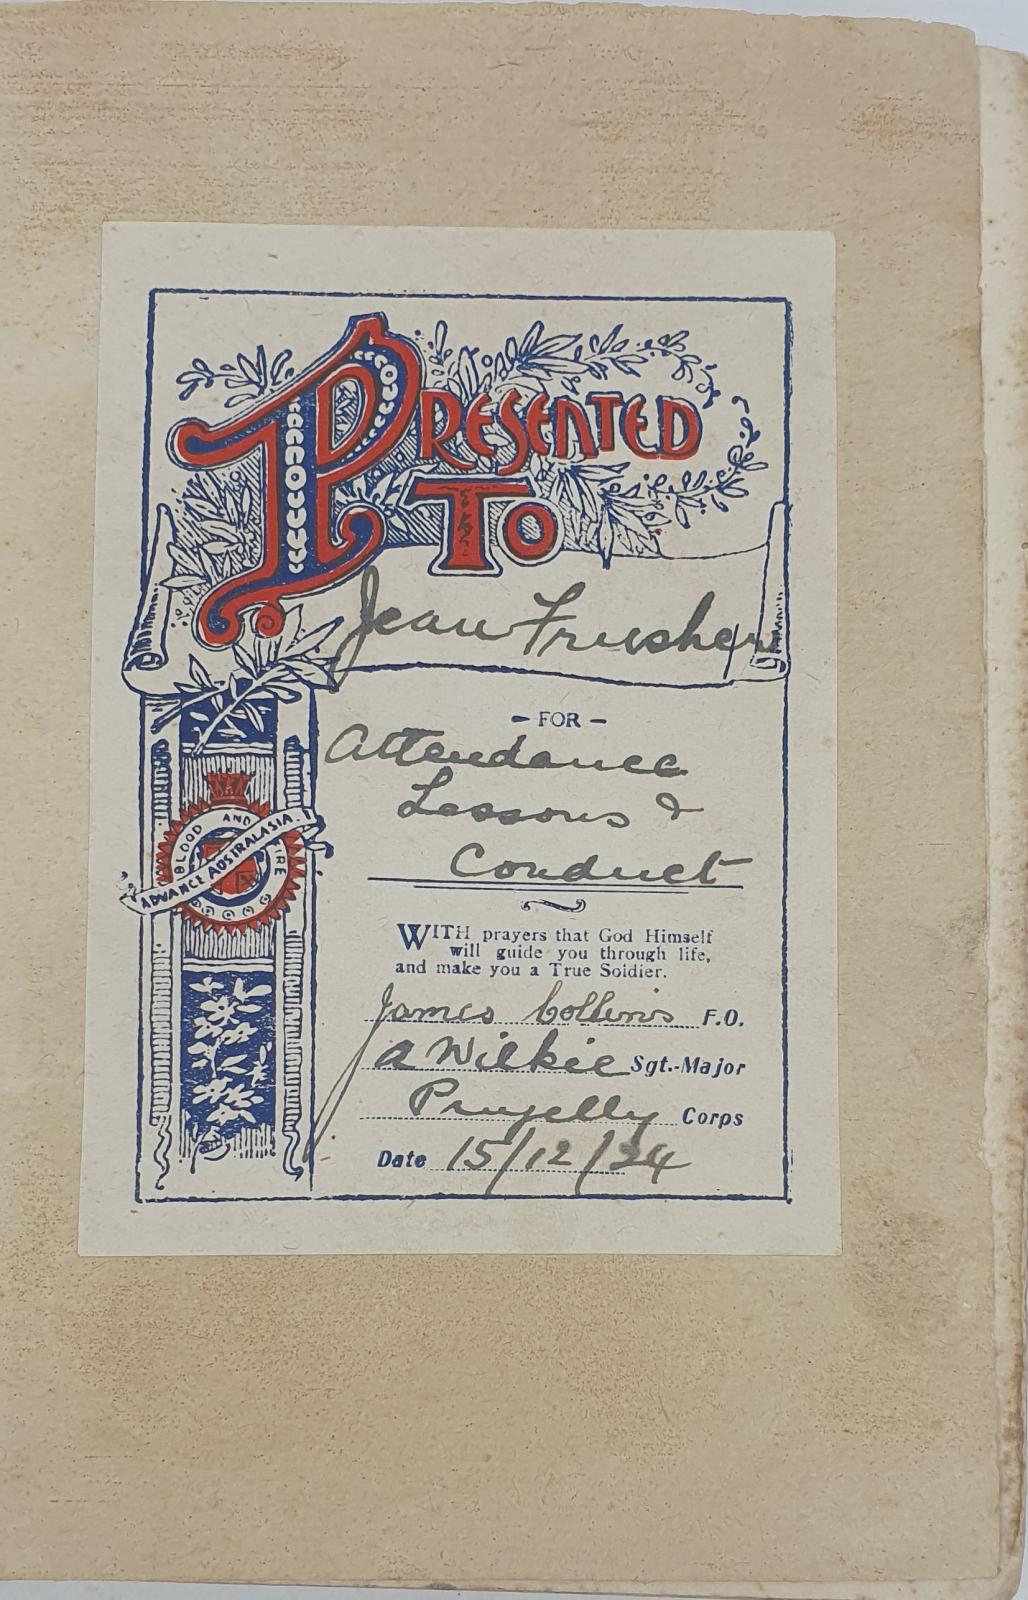 PRESENTED
TO
Jean Frusher
- FOR -
Attendance
Lessons &
Conduct
BLOOD AND FIRE
ADVANCE AUSTRALASIA.
WITH prayers that God Himself
will guide you through life,
and make you a True Soldier.
James Collins F.O.
A Wilkie Sgt.-Major
Corps
Date 15/12/34